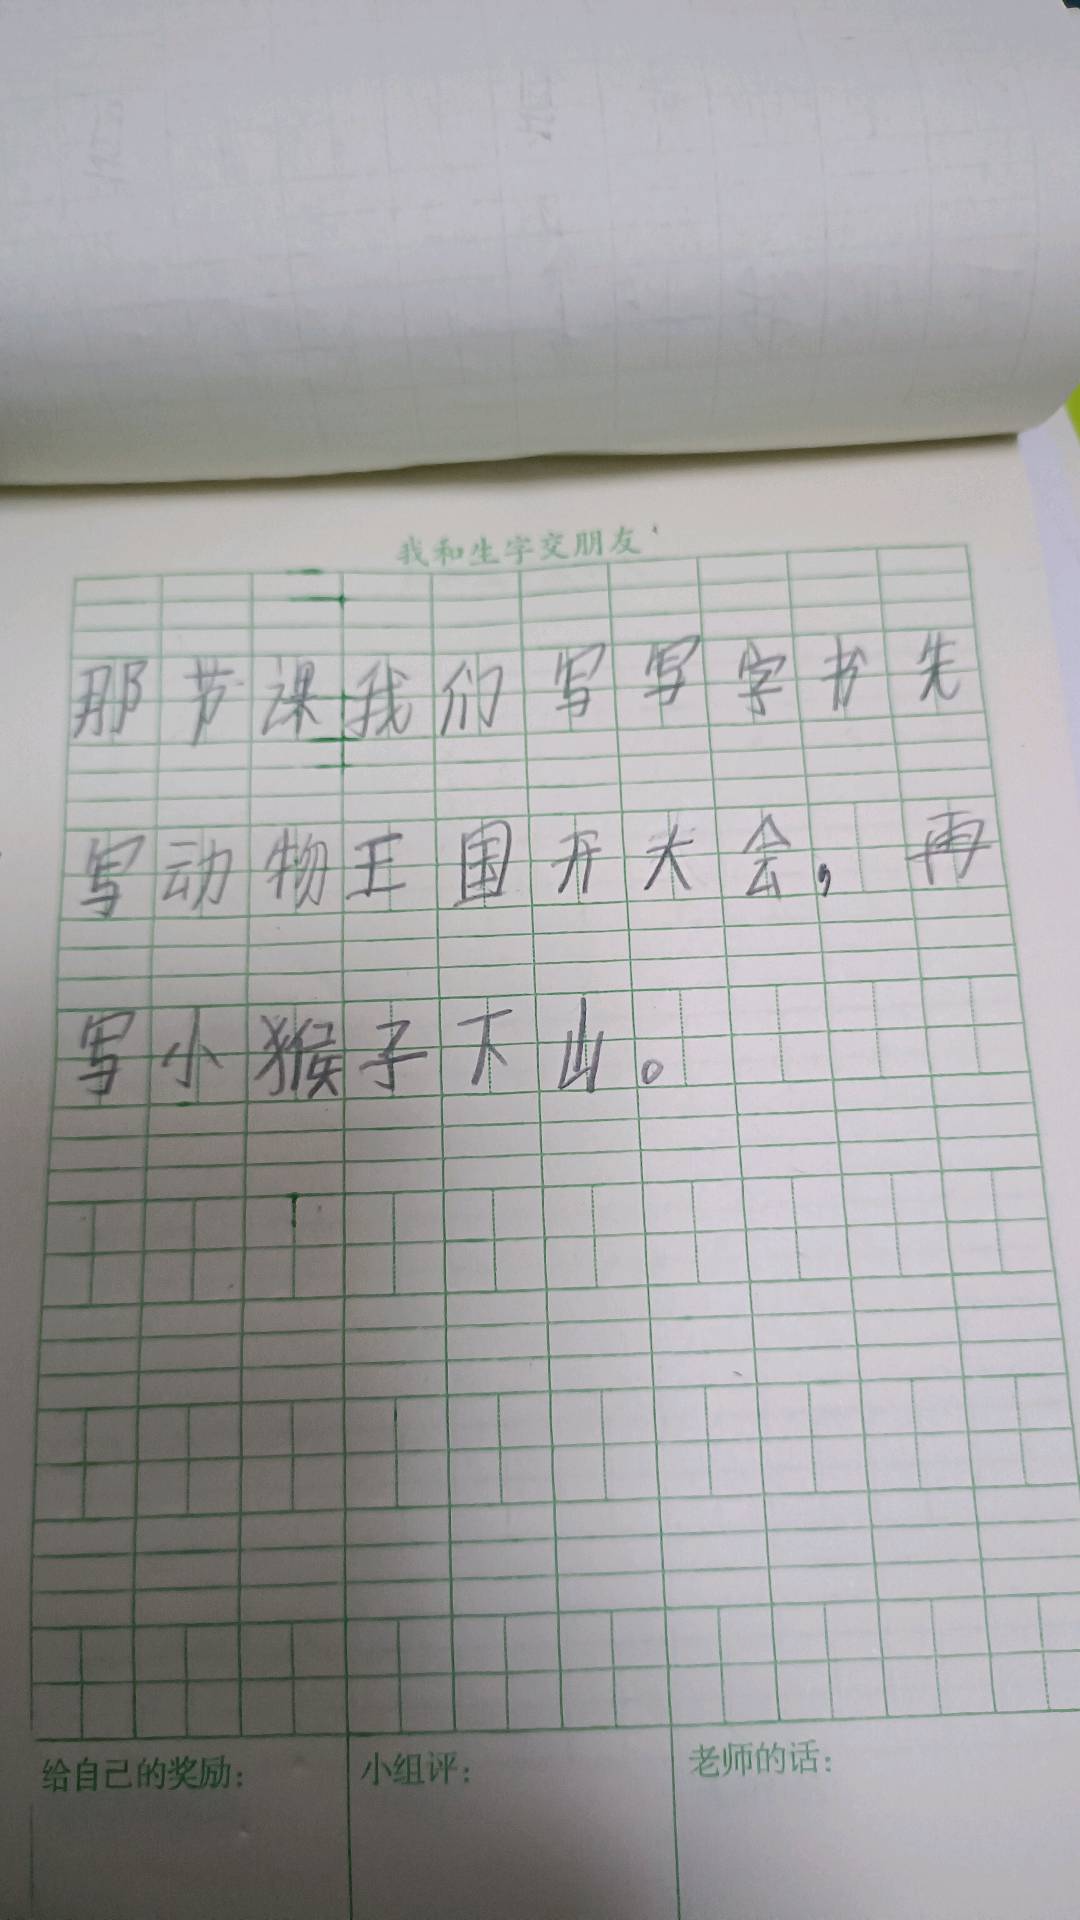 我和生字交朋友
那节课我们写写字书先
写动物王国开大会，再
写小猴子下山。
给自己的奖励：
小组评：
老师的话：